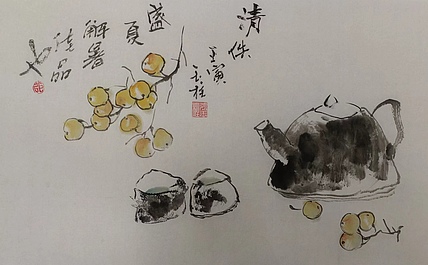 清供
壬寅
盛
夏
解暑
佳品